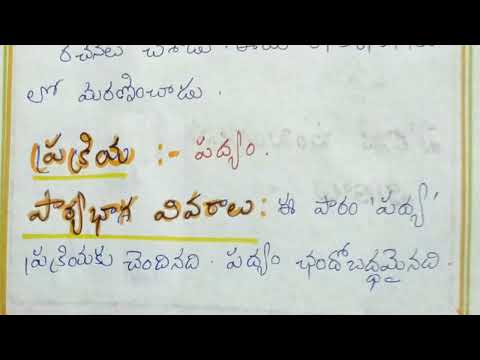 రచనలు చేశాడు. ఈయన
లో మరణించాడు.
ప్రక్రియ :- పద్యం.
పాఠ్యభాగ వివరాలు: ఈ పాఠం 'పద్య'
ప్రక్రియకు చెందినది. పద్యం ఛందోబద్ధమైనది.